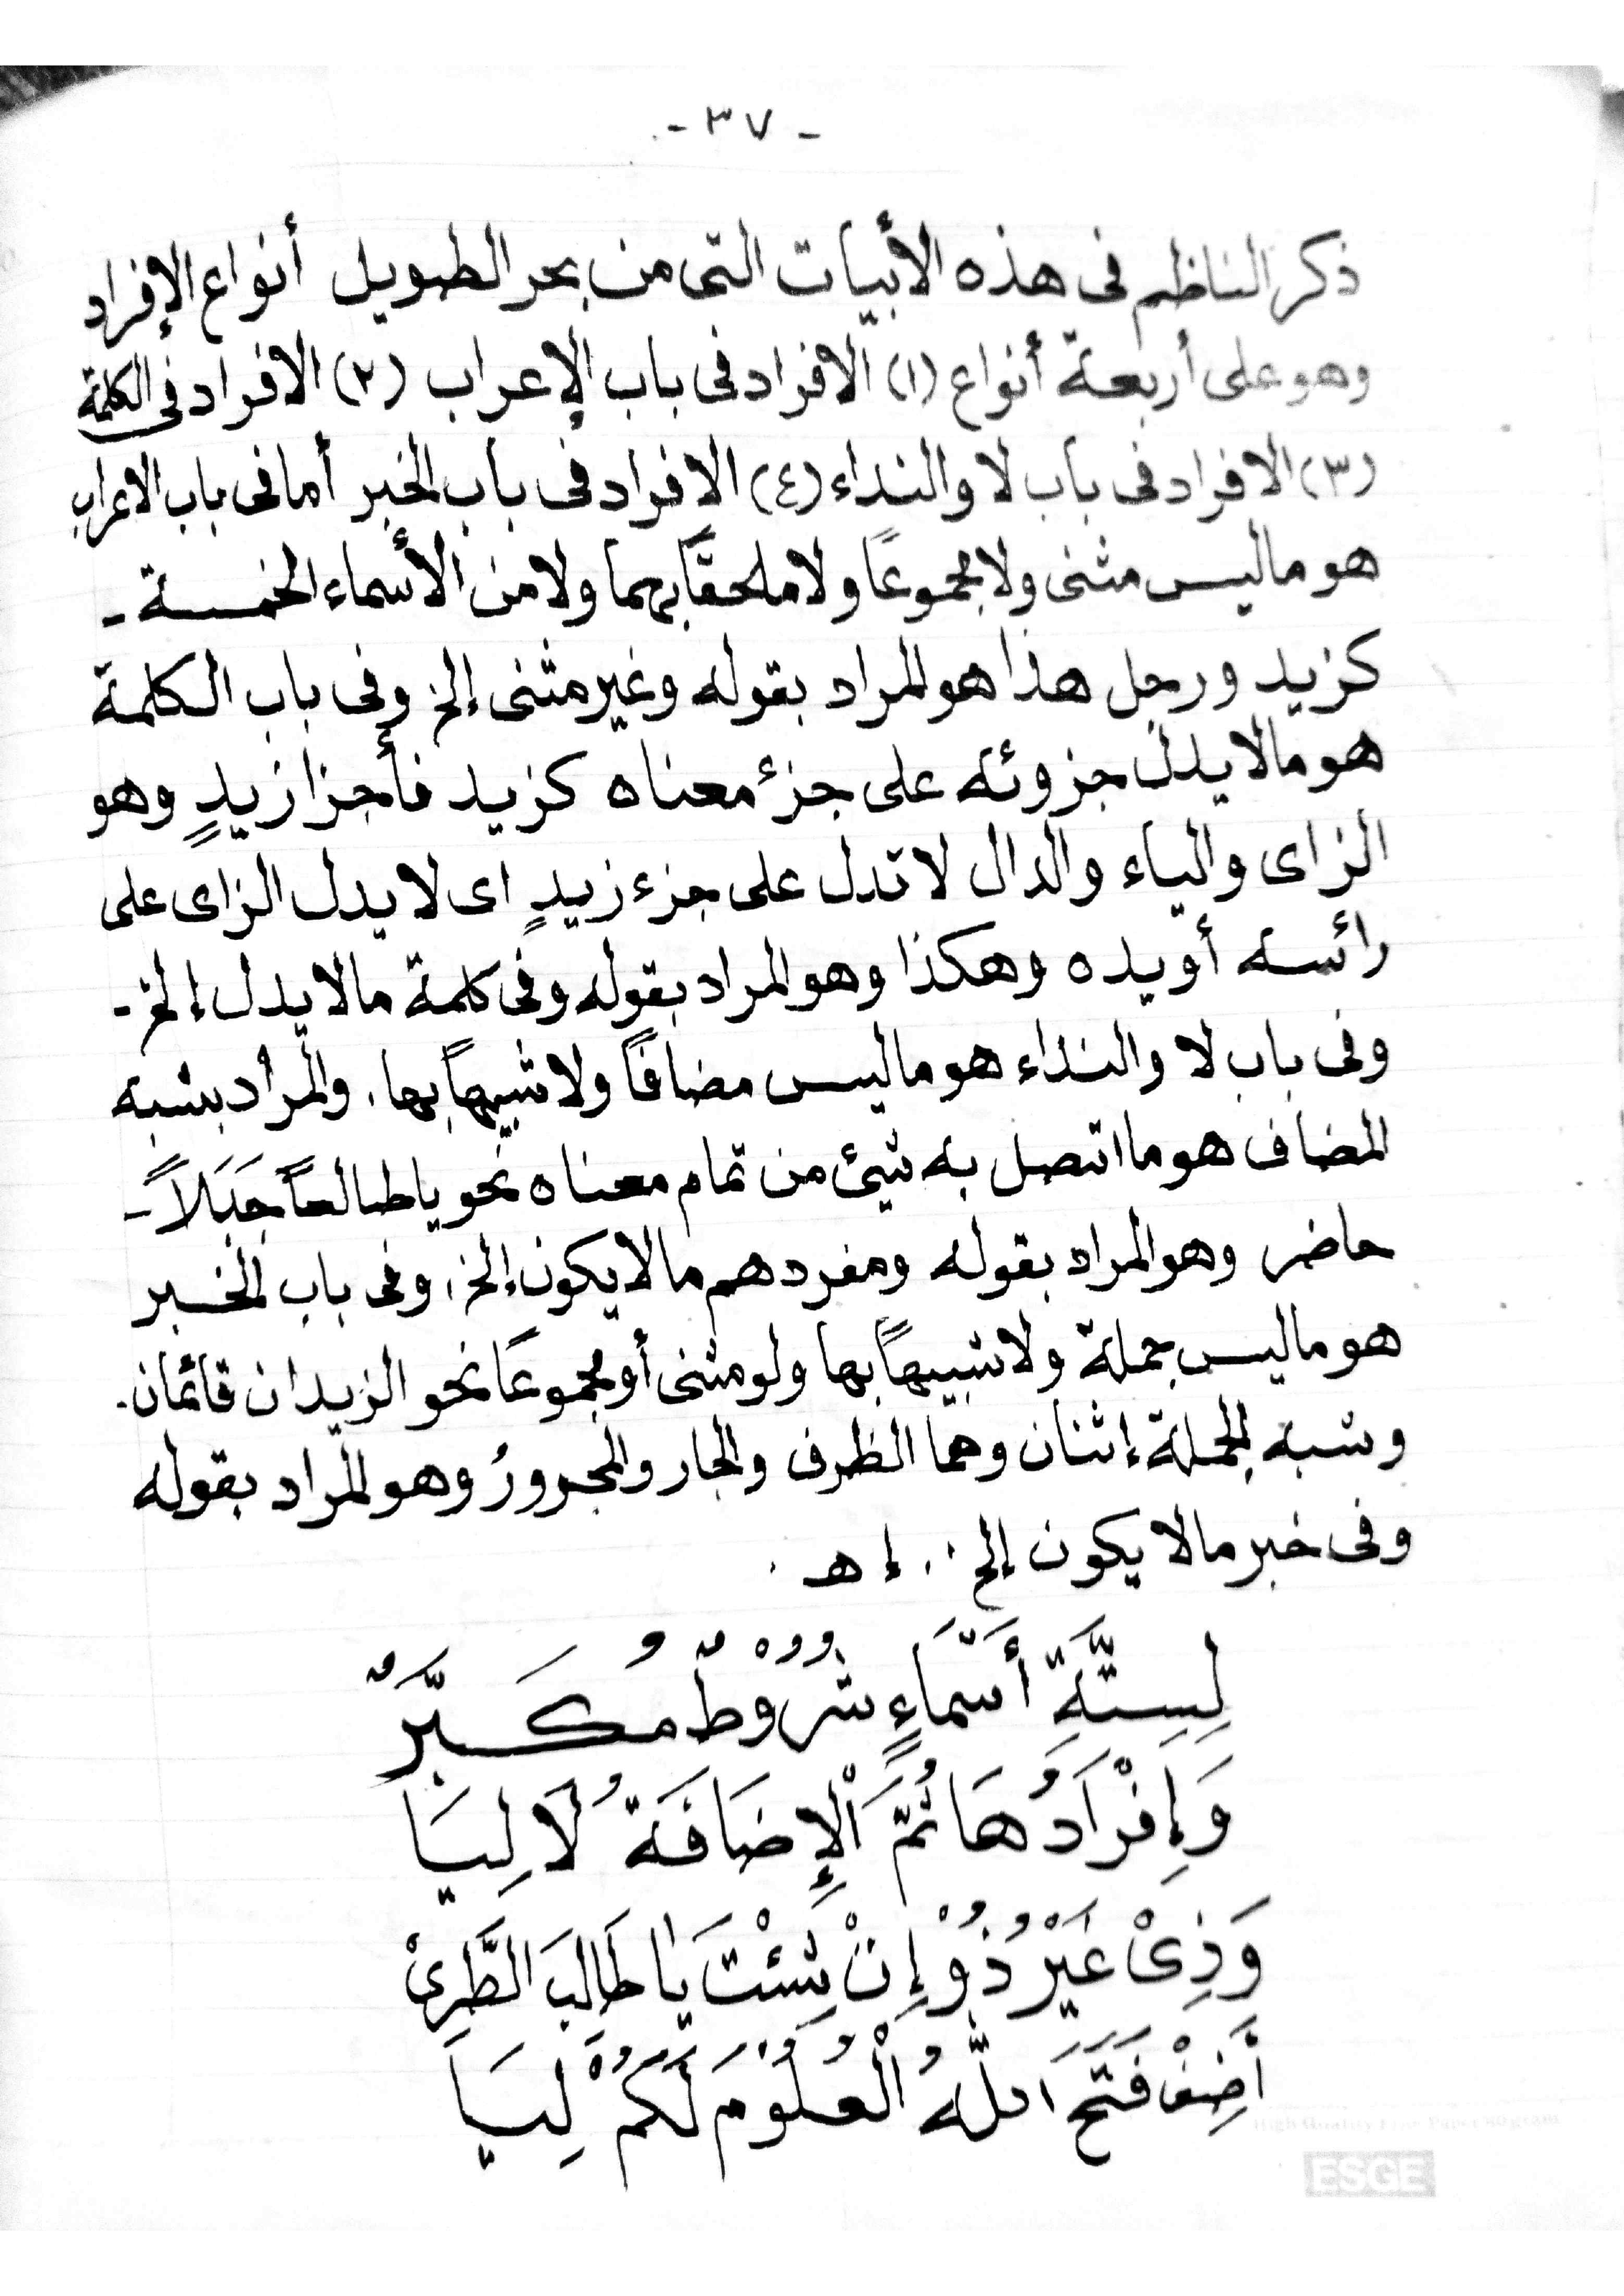 - ٣٧ -
ذكر الناظم فى هذه الأبيات التى من بحر الطويل أنواع الإفراد
وهو على أربعة أنواع (١) الافراد فى باب الإعراب (٢) الافراد فى الكلمة
(٣) الافراد فى باب لا والنداء (٤) الافراد فى باب الخبر أما فى باب الاعراب
هو ما ليس مثنى ولا مجموعًا ولا ملحقًا بهما ولا من الأسماء الخمسة -
كزيد ورجل هذا هو المراد بقوله وغير مثنى إلخ وفى باب الكلمة
هو ما لا يدل جزوئه على جزئ معناه كزيد فأجزا زيدٍ وهو
الزاى والياء والدال لا تدل على جزء زيدٍ اى لا يدل الزاى على
رائسه أويده وهكذا وهو المراد بقوله وفى كلمة ما لا يدل إلخ -
وفى باب لا والنداء هو ما ليس مضافًا ولا شبيهًا بها. والمراد بشبه
المضاف هو ما اتصل به شيئ من تمام معناه نحو يا طالعًا جَبَلًا -
حاضر وهو المراد بقوله ومفردهم ما لا يكون إلخ، وفى باب الخبر
هو ما ليس جملة ولا شبيهًا بها ولو مثنى أو مجموعًا نحو الزيدان قائمان.
وشبه الجملة إثنان وهما الظرف والجار والمجرورُ وهو المراد بقوله
وفى خبر ما لا يكون إلخ. إ هـ.
لِسِتَّةِ أَسْمَاءٍ شُرُوْطٌ مُكَبَّرٌ
وَإِفْرَادُهَا ثُمَّ الْإِضَافَةُ لَا لِيَا
وَذِىْ غَيْرُ ذُوْ إِنْ شِئْتَ يَا طَالِبَ الطَّرِىْ
أَضِفْ فَتَحَ اللّٰهُ الْعُلُوْمَ لَكُمْ لِيَا
High Quality Paper 80 gram
ESGE